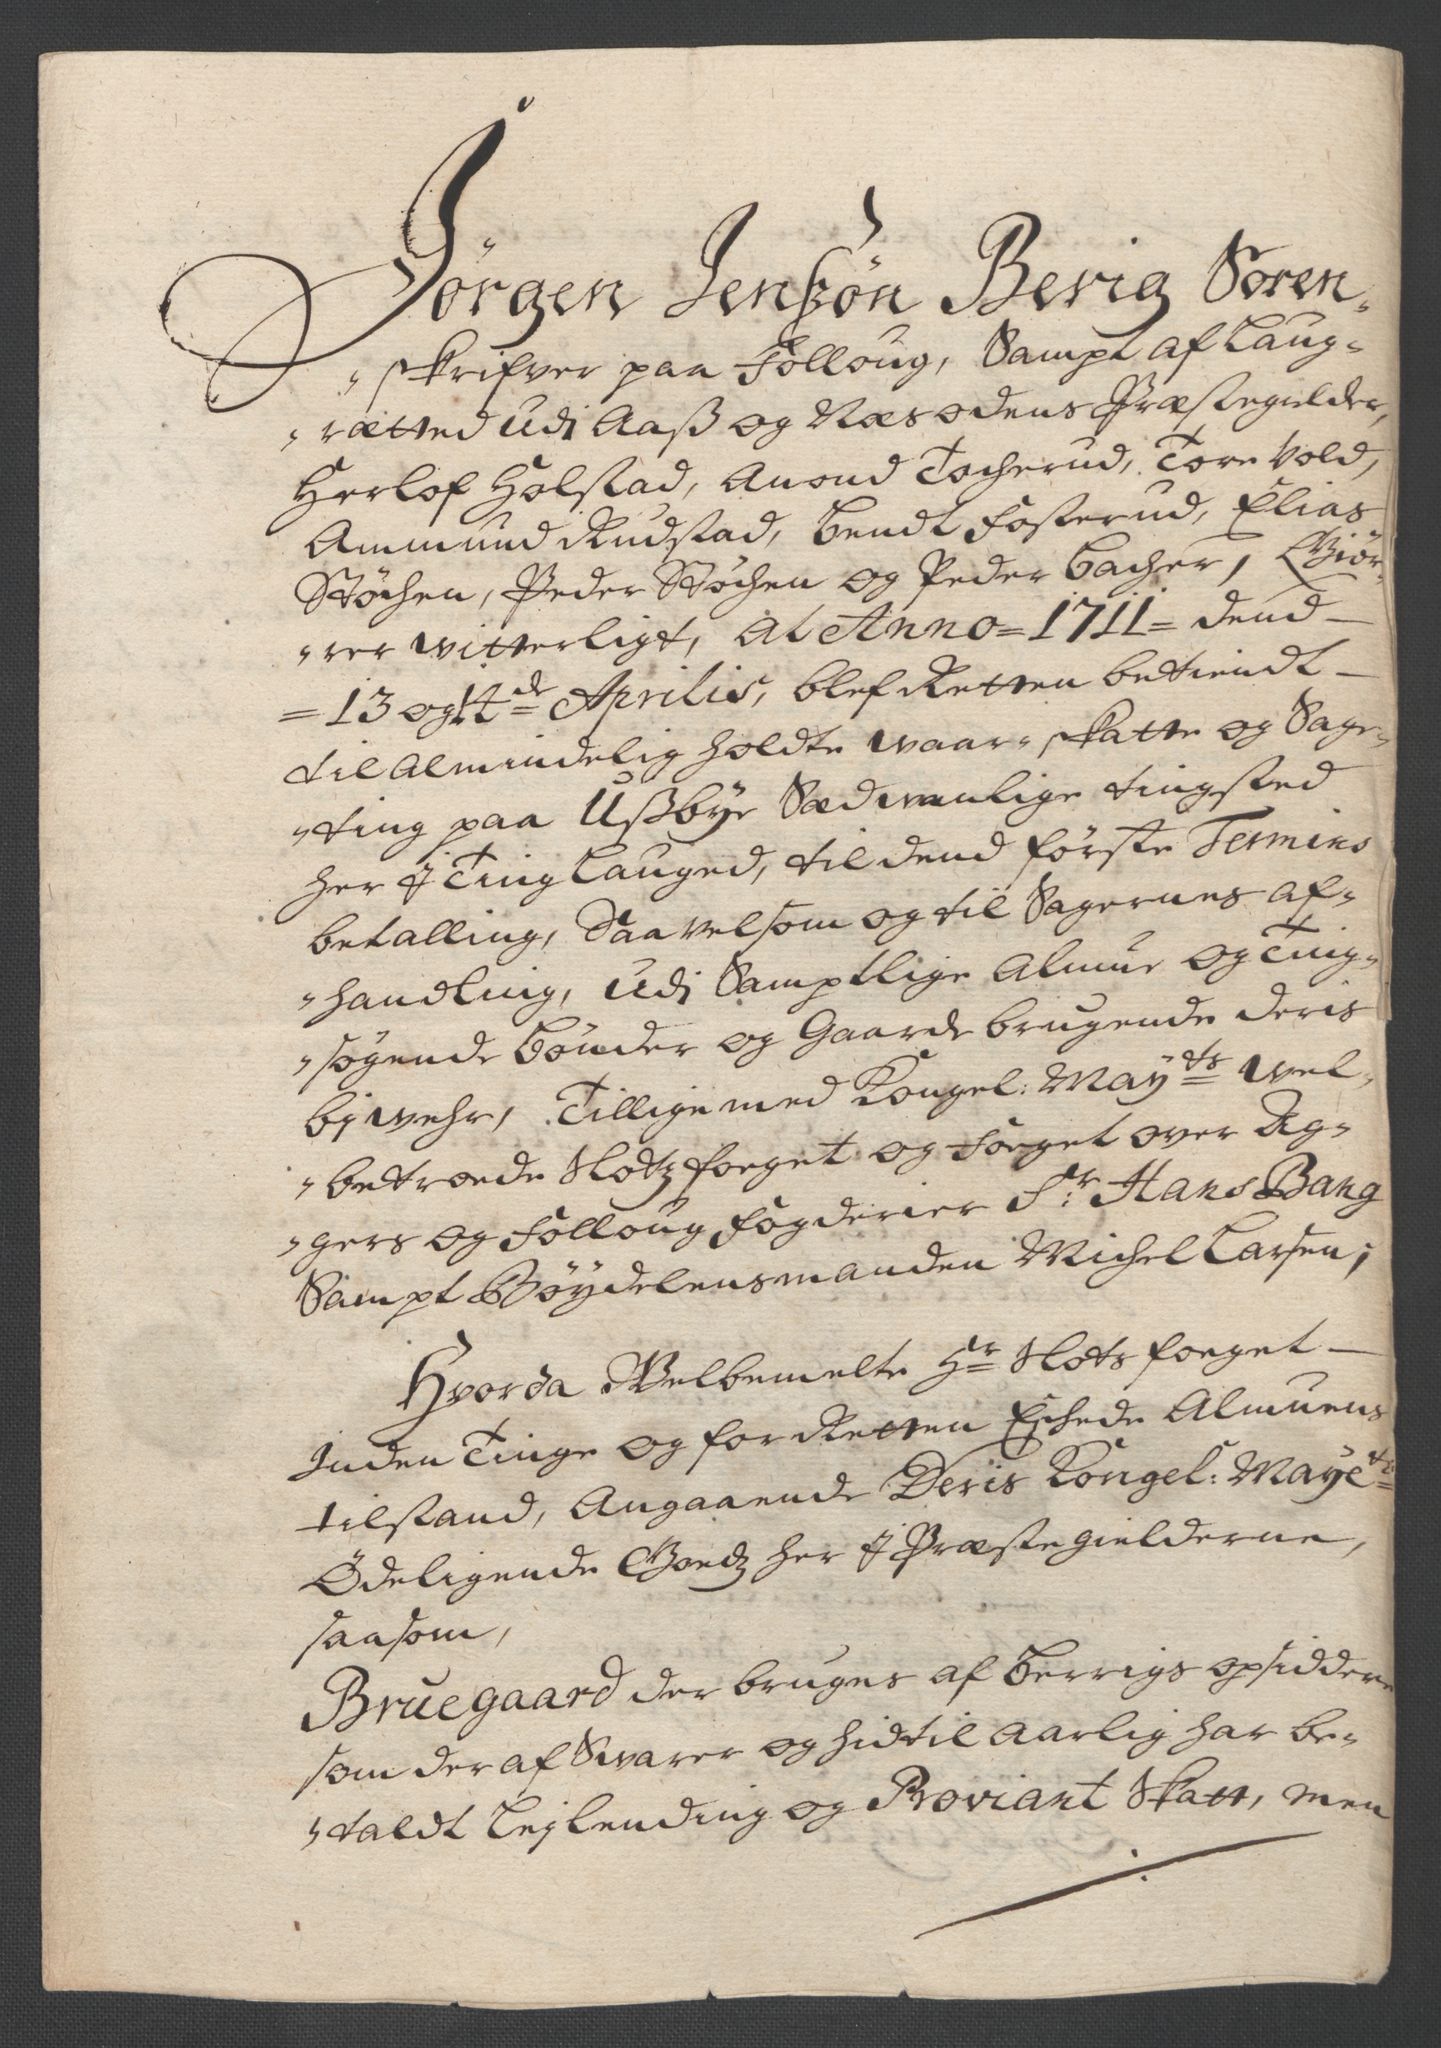 Jörgen Jenßön Berig Soren-
"skrifver paa Folloug, Sampt af Laug-
"rætted udj Aaß og Næsodens Præstegielder,
Herlof Holstad, Anond Tocherud, Tore Vold,
Ammund Rudstad, Bendt Fosterud, Elias
Støchen, Peder Støchen og Peder Bacher, Giör-
"rer witterligt, At Anno=1711= dend
=13 og 14de Aprilis, blef Retten betiendt
til Almindelig holdte waar-skatte og Sage-
"ting paa Ußbye Sædwanlige tingsted
her J Ting Lauged, til dend første Termins
betalling, Saavelsom og til Sagernes af-
"handling, udj Samptlige Almue og Ting-
"søgende Bönder og Gaarde brugende deris
bjwehr, Tillige med Kongel: Mayts wel-
"betroede Slotzfoeget og Foeget over Ag-
"gers og Folloug fogderier Sr: Hans Bang
Sampt Bøydelensmanden Michel Larsen,
Hvorda Welbemelte Hr Slotsfoeget
Inden Tinge og for Retten Eskede Almuens
tilstand, Angaaende Deris Kongel: Mayets
Ödeligende Goedz her J Præstegielderne,
saasom,
Bruegaard der bruges af Berrigs opsiddere
som der af Svarer og hidtil Aarlig har be-
"taldt Lejlending og Proviant Skatt, men